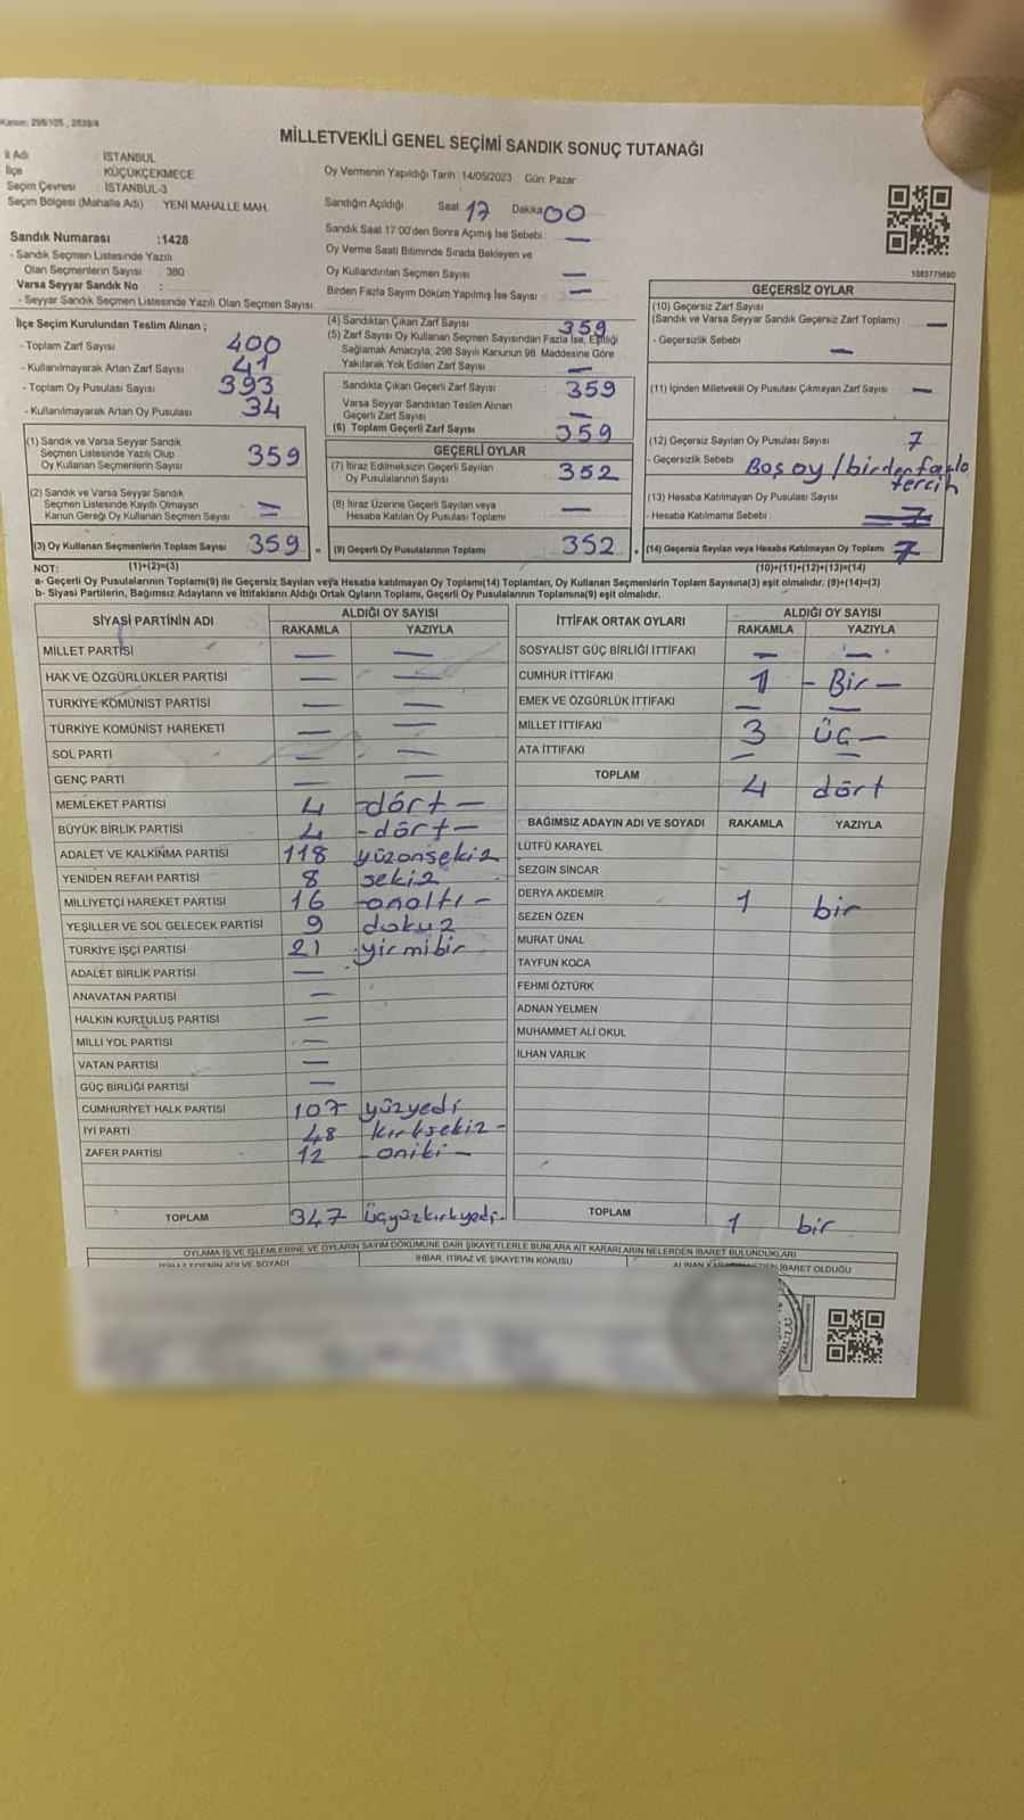 Kanun: 298/105, 2839/4
MİLLETVEKİLİ GENEL SEÇİMİ SANDIK SONUÇ TUTANAĞI
İl Adı İSTANBUL
İlçe KÜÇÜKÇEKMECE
Seçim Çevresi : İSTANBUL-3
Seçim Bölgesi (Mahalle Adı) YENİ MAHALLE MAH.
Oy Vermenin Yapıldığı Tarih : 14/05/2023 Gün: Pazar
Sandığın Açıldığı Saat 17 Dakika 00
Sandık Saat 17:00'den Sonra Açılmış İse Sebebi : —
Oy Verme Saati Bitiminde Sırada Bekleyen ve
Oy Kullandırılan Seçmen Sayısı —
Birden Fazla Sayım Döküm Yapılmış İse Sayısı : —
Sandık Numarası :1428
- Sandık Seçmen Listesinde Yazılı
Olan Seçmenlerin Sayısı 380
Varsa Seyyar Sandık No :
- Seyyar Sandık Seçmen Listesinde Yazılı Olan Seçmen Sayısı
İlçe Seçim Kurulundan Teslim Alınan ;
- Toplam Zarf Sayısı 400
- Kullanılmayarak Artan Zarf Sayısı 41
- Toplam Oy Pusulası Sayısı 393
- Kullanılmayarak Artan Oy Pusulası 34
(1) Sandık ve Varsa Seyyar Sandık
Seçmen Listesinde Yazılı Olup
Oy Kullanan Seçmenlerin Sayısı 359
(2) Sandık ve Varsa Seyyar Sandık
Seçmen Listesinde Kayıtlı Olmayan
Kanun Gereği Oy Kullanan Seçmen Sayısı =
(3) Oy Kullanan Seçmenlerin Toplam Sayısı 359
(1)+(2)=(3)
(4) Sandıktan Çıkan Zarf Sayısı 359
(5) Zarf Sayısı Oy Kullanan Seçmen Sayısından Fazla İse, Eşitliği
Sağlamak Amacıyla, 298 Sayılı Kanunun 98. Maddesine Göre
Yakılarak Yok Edilen Zarf Sayısı —
Sandıkta Çıkan Geçerli Zarf Sayısı : 359
Varsa Seyyar Sandıktan Teslim Alınan
Geçerli Zarf Sayısı —
(6) Toplam Geçerli Zarf Sayısı 359
GEÇERLİ OYLAR
(7) İtiraz Edilmeksizin Geçerli Sayılan
Oy Pusulalarının Sayısı 352
(8) İtiraz Üzerine Geçerli Sayılan veya
Hesaba Katılan Oy Pusulası Toplamı —
(9) Geçerli Oy Pusulalarının Toplamı 352
GEÇERSİZ OYLAR
(10) Geçersiz Zarf Sayısı
(Sandık ve Varsa Seyyar Sandık Geçersiz Zarf Toplamı) —
- Geçersizlik Sebebi —
(11) İçinden Milletvekili Oy Pusulası Çıkmayan Zarf Sayısı —
(12) Geçersiz Sayılan Oy Pusulası Sayısı 7
- Geçersizlik Sebebi Boş oy / birden fazla
tercih
(13) Hesaba Katılmayan Oy Pusulası Sayısı
- Hesaba Katılmama Sebebi
(14) Geçersiz Sayılan veya Hesaba Katılmayan Oy Toplamı 7
(10)+(11)+(12)+(13)=(14)
NOT:
a- Geçerli Oy Pusulalarının Toplamı(9) ile Geçersiz Sayılan veya Hesaba katılmayan Oy Toplamı(14) Toplamları, Oy Kullanan Seçmenlerin Toplam Sayısına(3) eşit olmalıdır. (9)+(14)=(3)
b- Siyasi Partilerin, Bağımsız Adayların ve İttifakların Aldığı Ortak Oyların Toplamı, Geçerli Oy Pusulalarının Toplamına(9) eşit olmalıdır.
SİYASİ PARTİNİN ADI ALDIĞI OY SAYISI
RAKAMLA YAZIYLA
MİLLET PARTİSİ — —
HAK VE ÖZGÜRLÜKLER PARTİSİ — —
TÜRKİYE KOMÜNİST PARTİSİ — —
TÜRKİYE KOMÜNİST HAREKETİ — —
SOL PARTİ — —
GENÇ PARTİ — —
MEMLEKET PARTİSİ 4 -dört-
BÜYÜK BİRLİK PARTİSİ 4 -dört-
ADALET VE KALKINMA PARTİSİ 118 yüzonsekiz
YENİDEN REFAH PARTİSİ 8 sekiz
MİLLİYETÇİ HAREKET PARTİSİ 16 -onaltı-
YEŞİLLER VE SOL GELECEK PARTİSİ 9 dokuz
TÜRKİYE İŞÇİ PARTİSİ 21 yirmibir
ADALET BİRLİK PARTİSİ —
ANAVATAN PARTİSİ —
HALKIN KURTULUŞ PARTİSİ —
MİLLİ YOL PARTİSİ —
VATAN PARTİSİ —
GÜÇ BİRLİĞİ PARTİSİ —
CUMHURİYET HALK PARTİSİ 107 yüzyedi
İYİ PARTİ 48 kırksekiz-
ZAFER PARTİSİ 12 -oniki-
TOPLAM 347 üçyüzkırkyedi.
İTTİFAK ORTAK OYLARI ALDIĞI OY SAYISI
RAKAMLA YAZIYLA
SOSYALİST GÜÇ BİRLİĞİ İTTİFAKI — —
CUMHUR İTTİFAKI 1 -Bir-
EMEK VE ÖZGÜRLÜK İTTİFAKI — —
MİLLET İTTİFAKI 3 üç-
ATA İTTİFAKI — —
TOPLAM 4 dört
BAĞIMSIZ ADAYIN ADI VE SOYADI RAKAMLA YAZIYLA
LÜTFÜ KARAYEL
SEZGİN SİNCAR
DERYA AKDEMİR 1 bir
SEZEN ÖZEN
MURAT ÜNAL
TAYFUN KOCA
FEHMİ ÖZTÜRK
ADNAN YELMEN
MUHAMMET ALİ OKUL
İLHAN VARLIK
TOPLAM 1 bir
OYLAMA İŞ VE İŞLEMLERİNE VE OYLARIN SAYIM DÖKÜMÜNE DAİR ŞİKAYETLERLE BUNLARA AİT KARARLARIN NELERDEN İBARET BULUNDUKLARI
İHBAR, İTİRAZ VE ŞİKAYETİN KONUSU
İBARET OLDUĞU